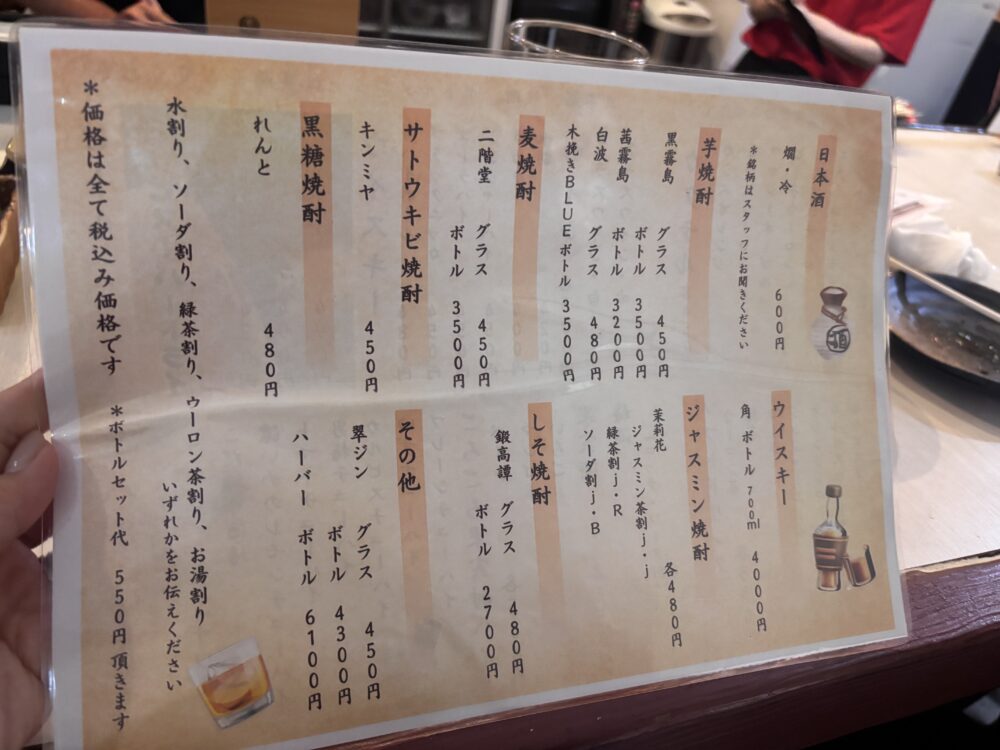 日本酒
燗・冷 600円
*銘柄はスタッフにお聞きください
芋焼酎
黒霧島 グラス 450円
ボトル 3500円
茜霧島 ボトル 3200円
白波 グラス 480円
木挽きBLUE ボトル 3500円
麦焼酎
二階堂 グラス 450円
ボトル 3500円
サトウキビ焼酎
キンミヤ 450円
黒糖焼酎
れんと 480円
ウイスキー
角 ボトル 700ml 4000円
ジャスミン焼酎
茉莉花 各480円
ジャスミン茶割j・j
緑茶割j・R
ソーダ割j・B
しそ焼酎
鍛高譚 グラス 480円
ボトル 2700円
その他
翠ジン グラス 450円
ボトル 4300円
ハーバー ボトル 6100円
水割り、ソーダ割り、緑茶割り、ウーロン茶割り、お湯割り
いずれかをお伝えください
*価格は全て税込み価格です *ボトルセット代 550円 頂きます
酒